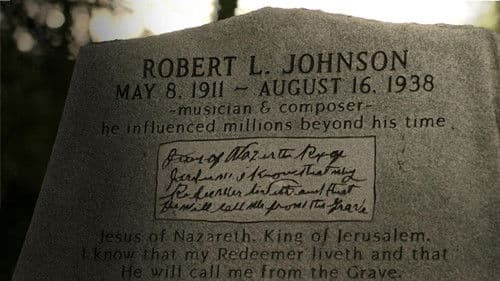 ROBERT L. JOHNSON
MAY 8, 1911 ~ AUGUST 16, 1938
-musician & composer-
he influenced millions beyond his time
Jesus of Nazareth King of
Jerusalem. I know that my
Redeemer liveth and that
He will call me from the Grave
Jesus of Nazareth, King of Jerusalem,
I know that my Redeemer liveth and that
He will call me from the Grave.